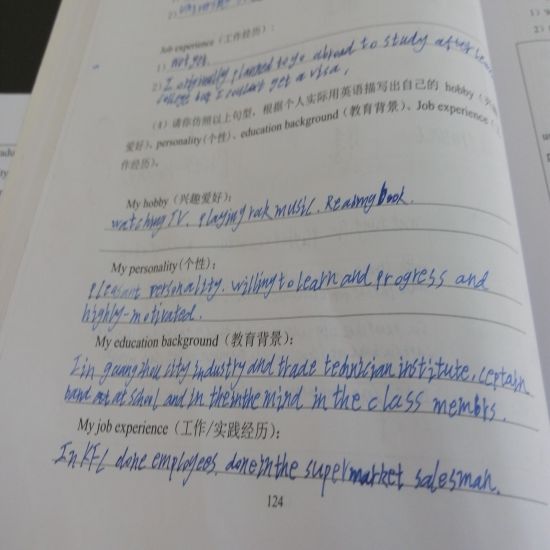 2)
Job experience (工作经历):
1) not yet.
2) I originally planned to go abroad to study after
college but I couldn't get a visa,
(4) 请你仿照以上句型，根据个人实际用英语描写出自己的 hobby (兴趣
爱好)、personality (个性)、education background (教育背景)、Job experience (工
作经历)。
My hobby (兴趣爱好):
watching TV. playing rock music. Reading book.
My personality (个性):
pleasant personality. willing to learn and progress and
highly-motivated.
My education background (教育背景):
I in guangzhou city industry and trade technician institute.
at school and in the in the mind in the class membrs.
My job experience (工作/实践经历):
In KFC done employees. done in the supermarket salesman.
124
1)
2)